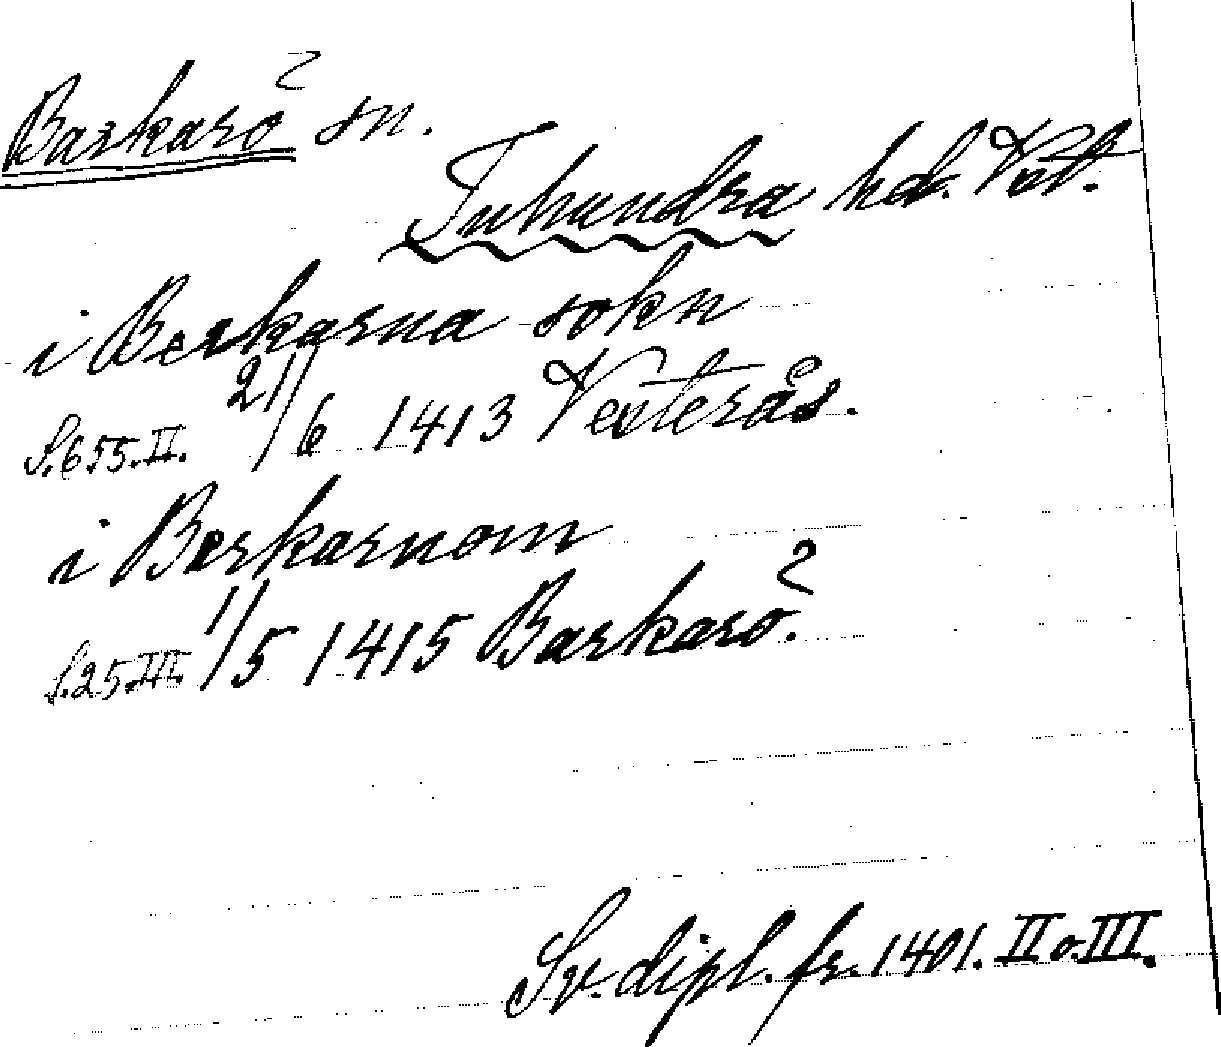 Barkarö sn.
Tuhundra hd. Vstm.
i Berkarna sokn
S. 655. II. 21/6 1413 Vesterås.
i Berkarnom
S. 25. III. 1/5 1415 Barkarö.
Sv. dipl. fr. 1401. II o. III.